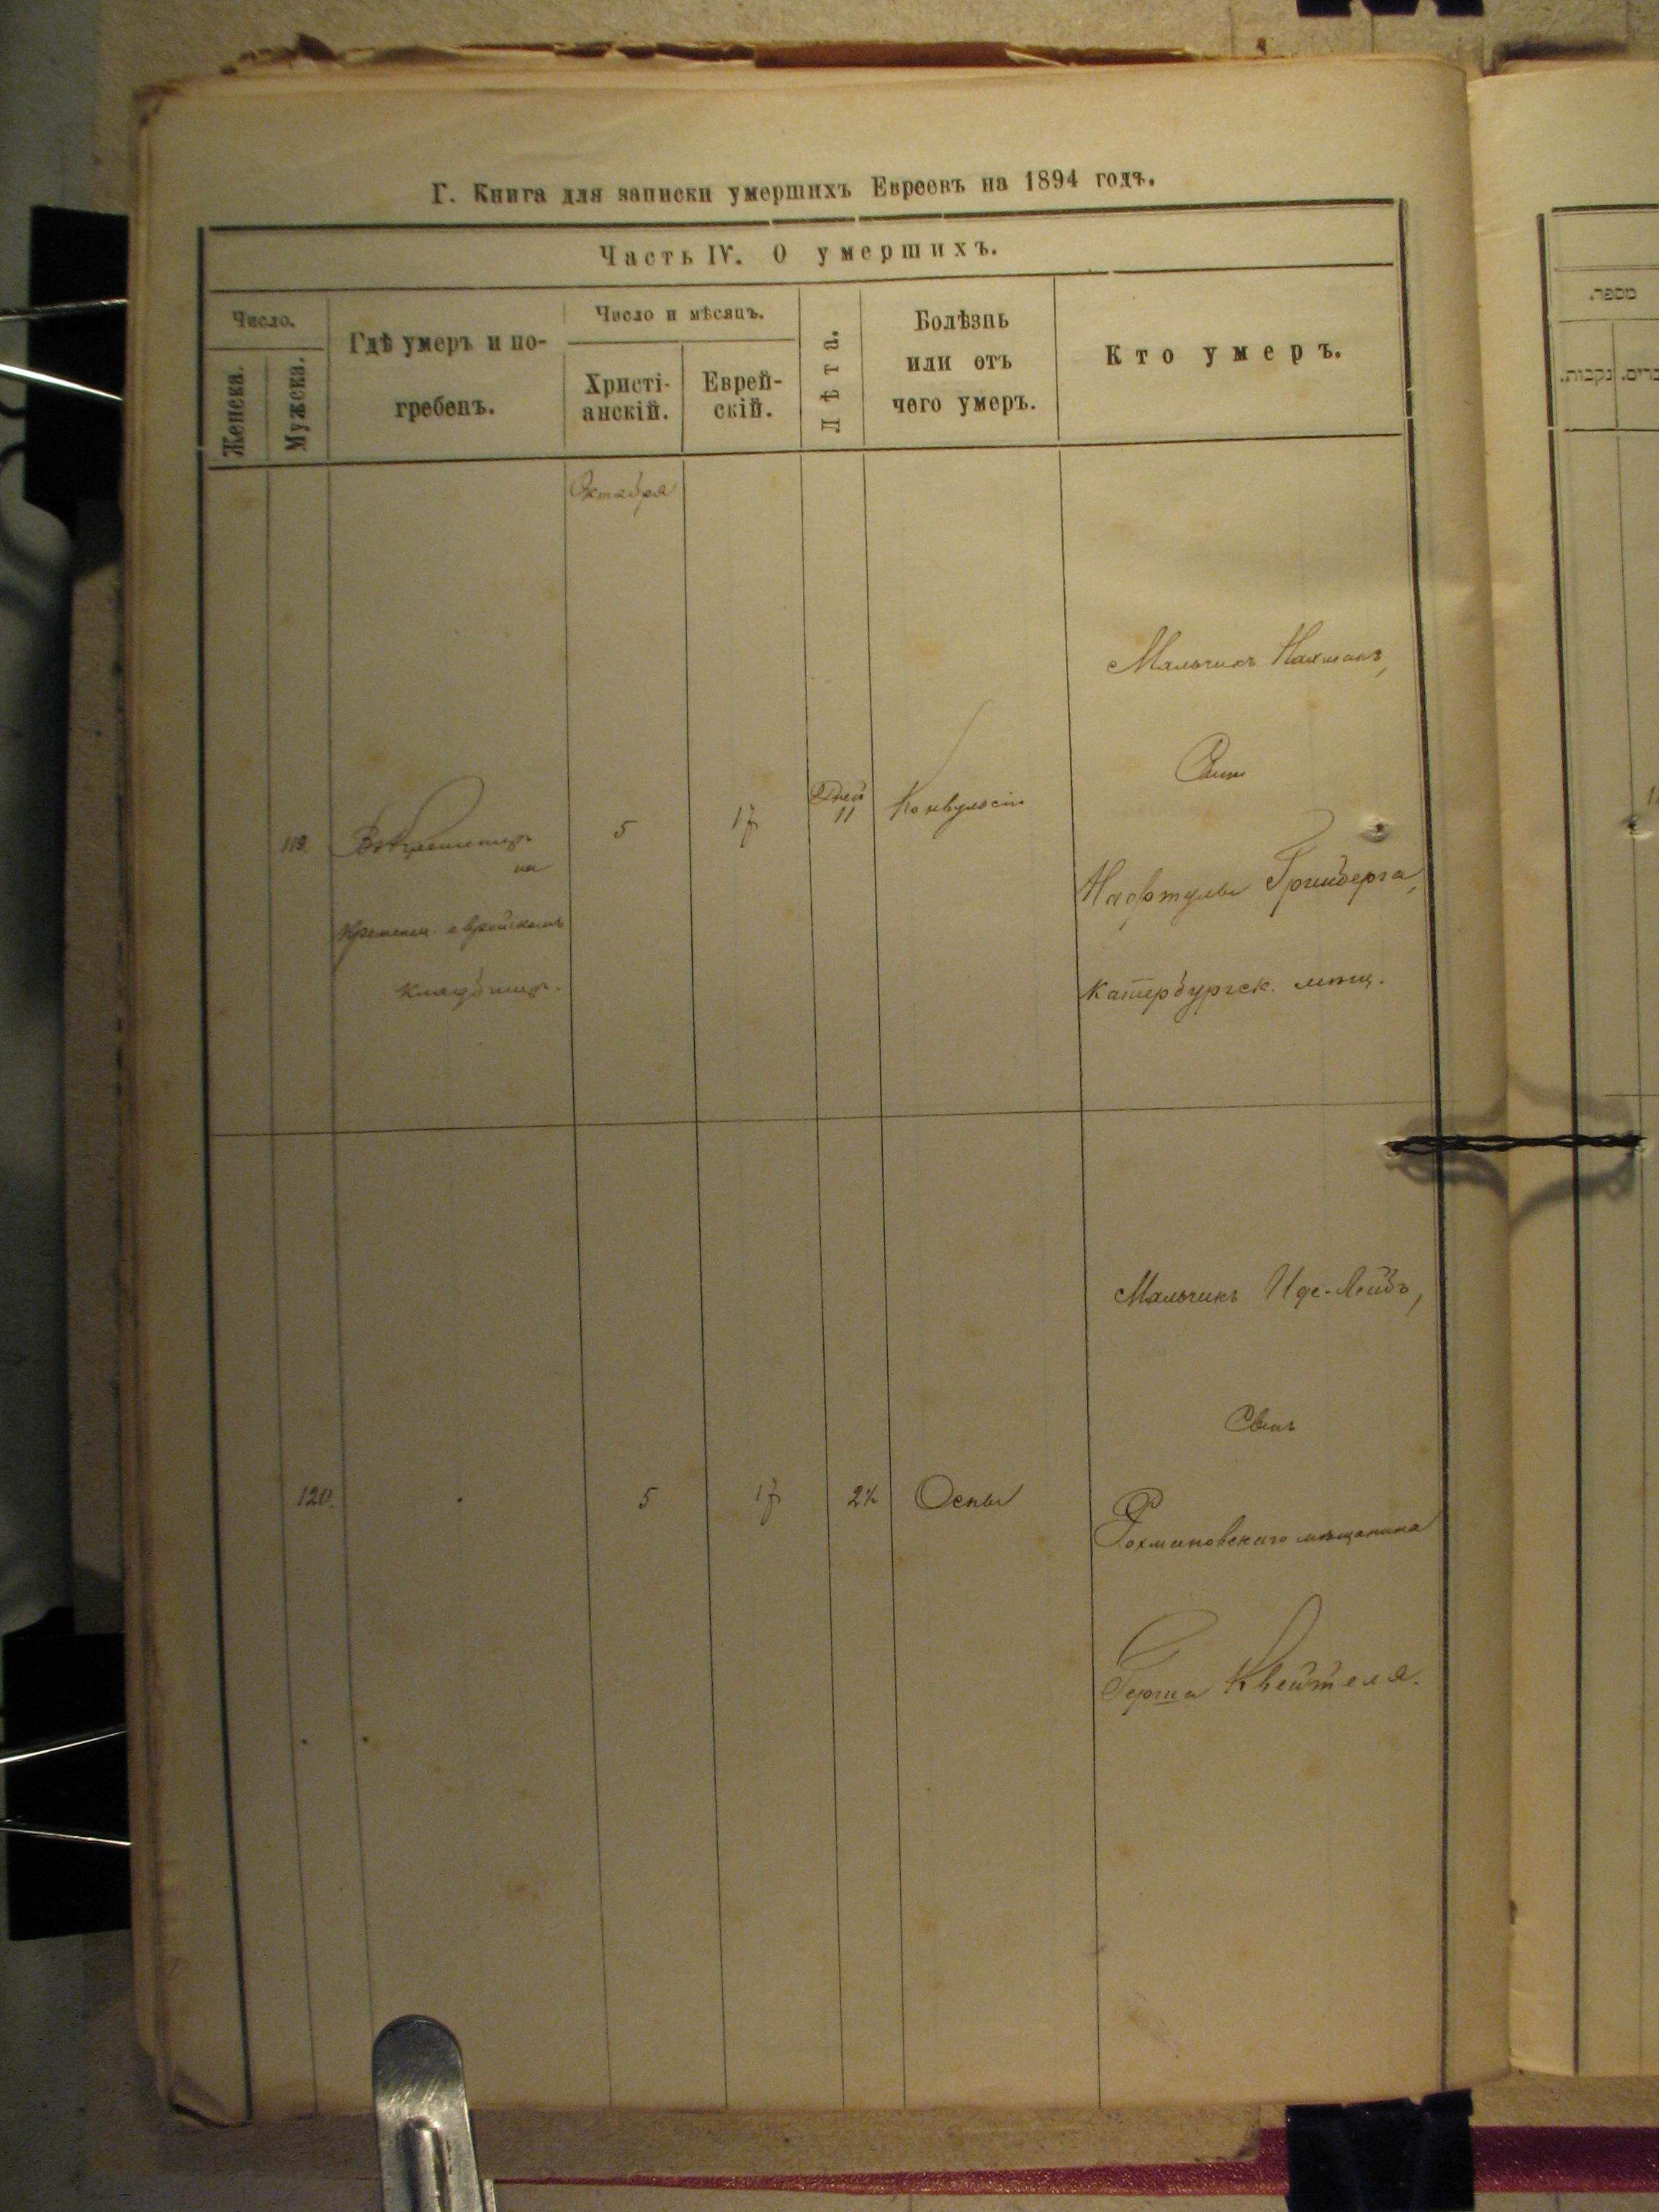 Г. Книга для записки умершихъ Евреевъ на 1894 годъ.
Часть IV. О умершихъ.
Число.
Женска.
Мужска.
Гдѣ умеръ и по-
гребенъ.
Число и мѣсяцъ.
Христі-
анскій.
Еврей-
скій.
Лѣта.
Болѣзнь
или отъ
чего умеръ.
Кто умеръ.
Октября
Мальчикъ Нахманъ,
Сынъ
119.
на
5
17
Дней
11
Конвульсіи
Нафтулы Гринберга,
Кременец. еврейскомъ
кладбищѣ.
Катербургск. мѣщ.
Мальчикъ Иде-Лейбъ,
Сынъ
120.
5
17
2½
Оспы
Рохмановскаго мѣщанина
Герша Квейтеля.
מספר.
נקבות.